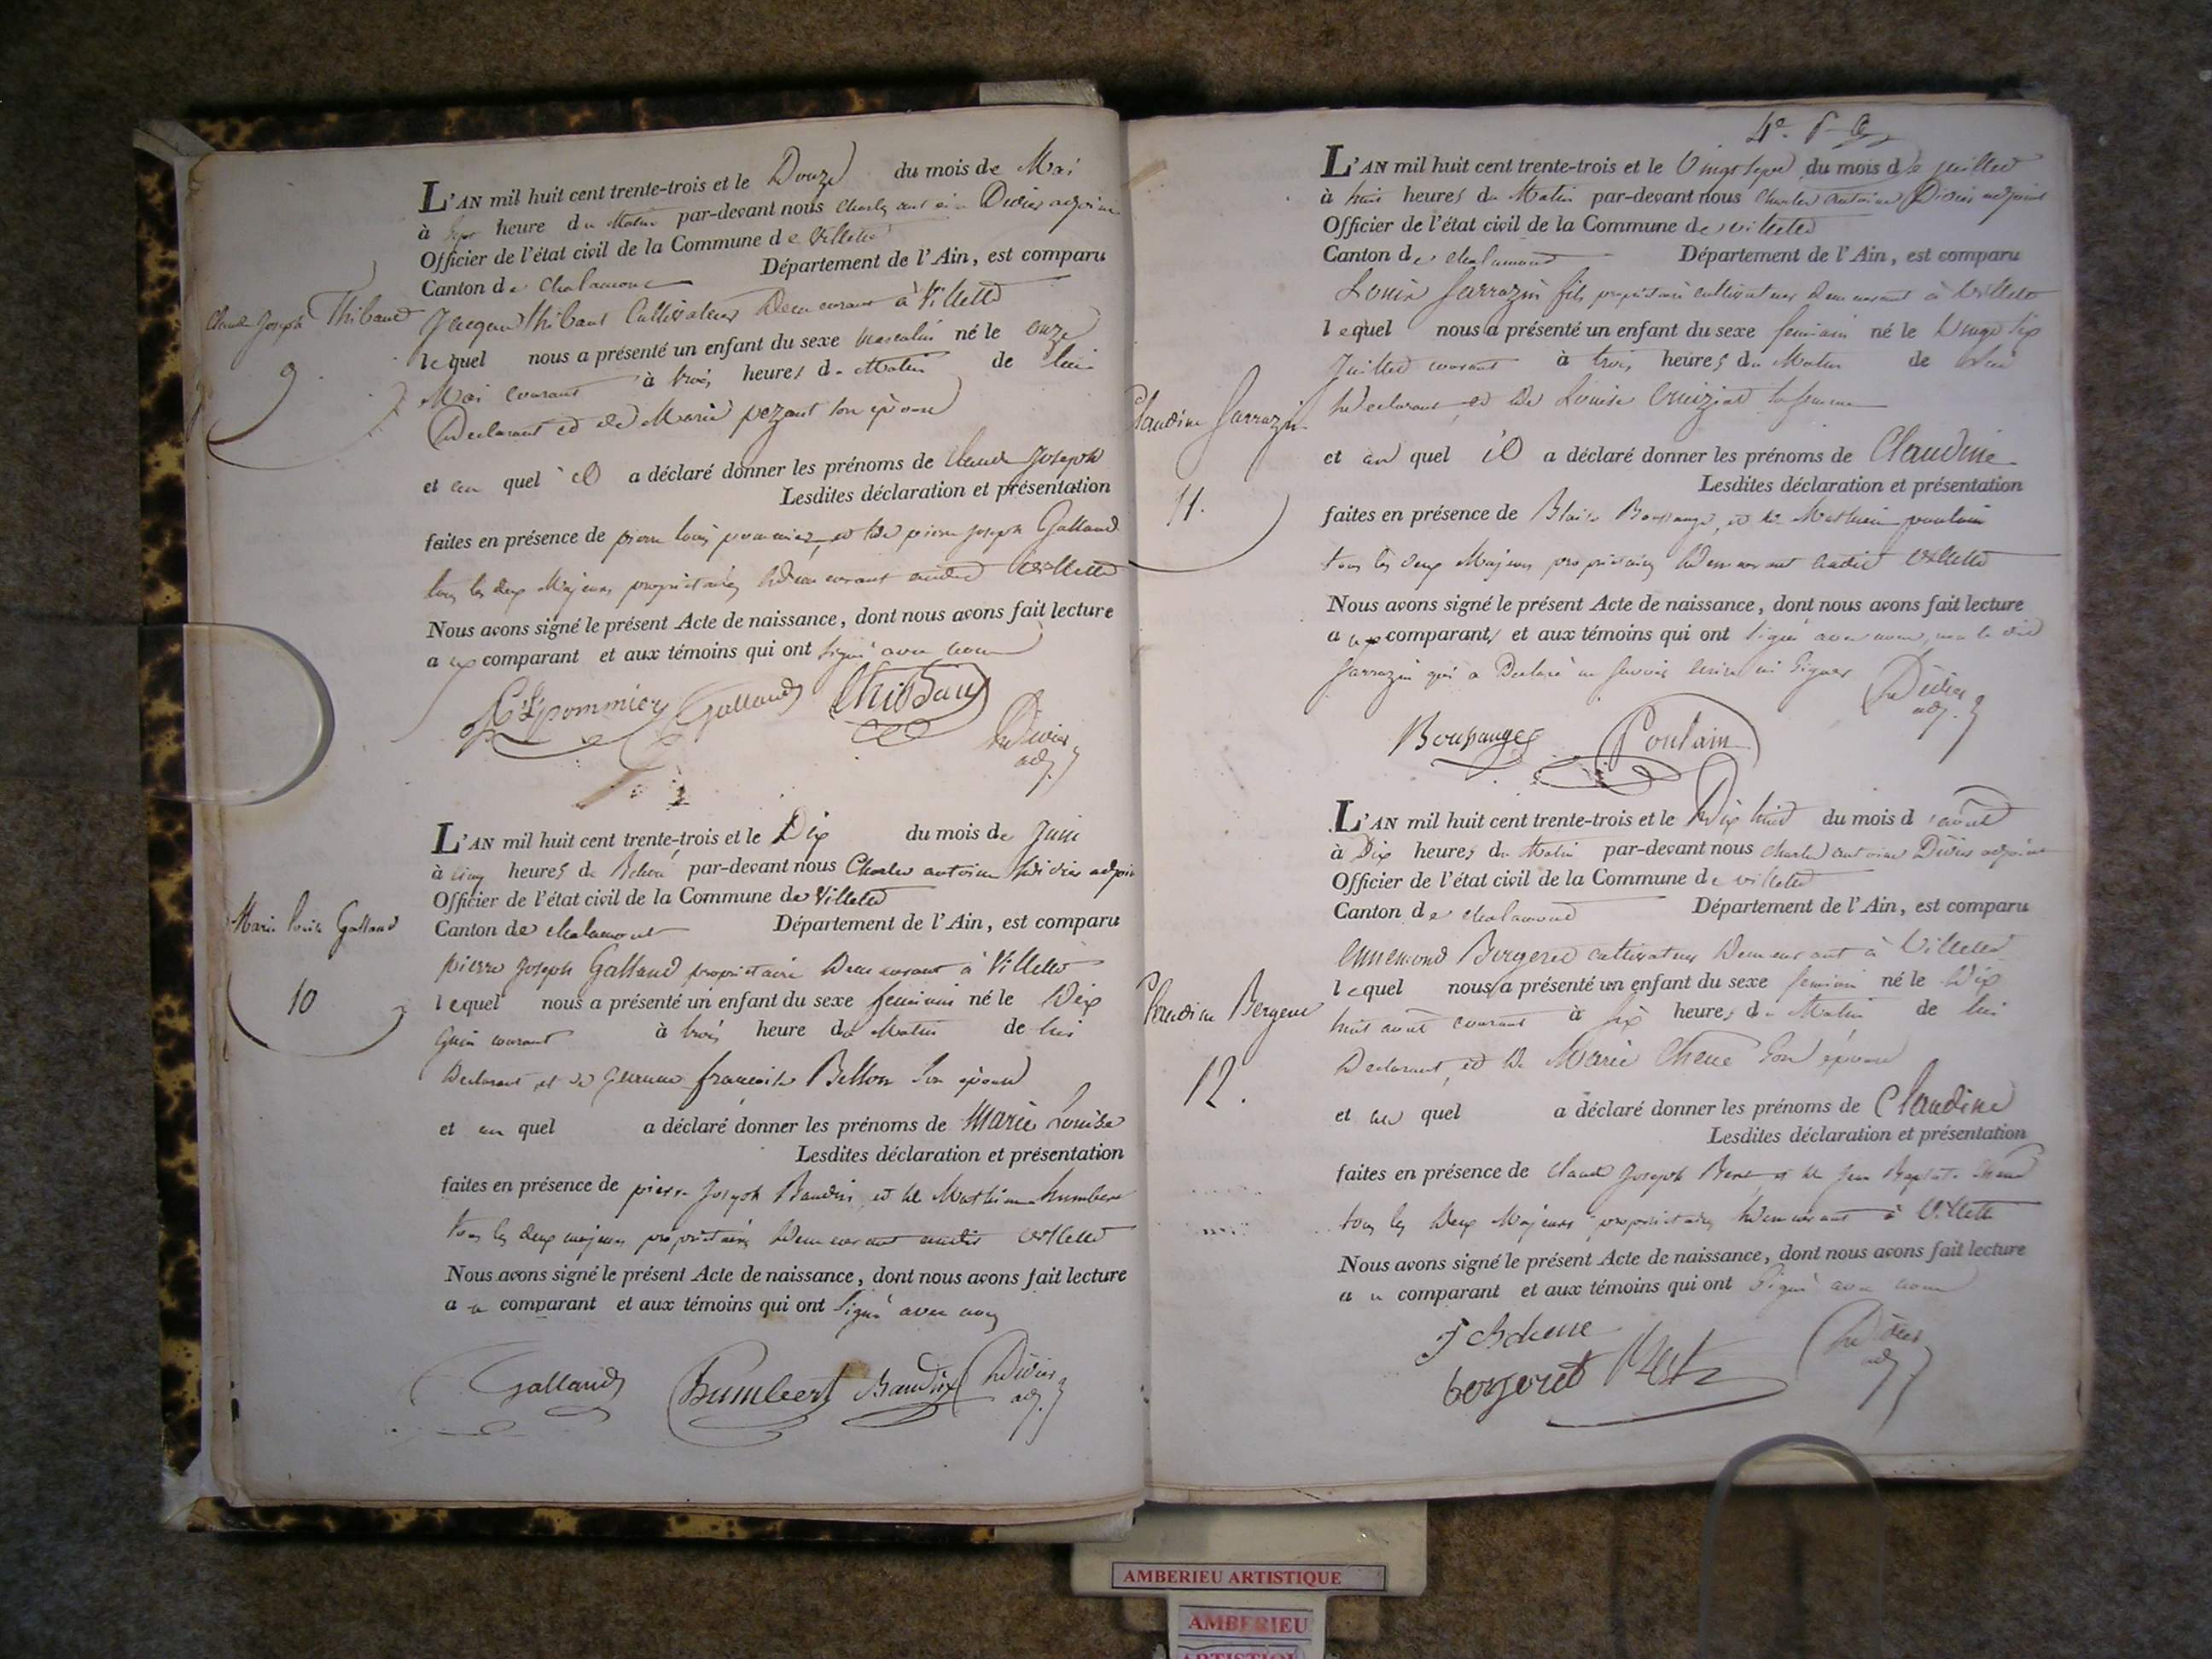 L'AN mil huit cent trente-trois et le Douze du mois de Mai
à sept heure du Matin par-devant nous Charles antoine Didier adjoint
Officier de l'état civil de la Commune de Villette
Canton de Chalamont Département de l'Ain, est comparu
Claude Joseph Thibaud
9
Jacques Thibaut Cultivateur Demeurant à Villette
lequel nous a présenté un enfant du sexe masculin né le onze
Mai courant à trois heures du Matin de lui
Déclarant et de Marie pezant son épouse
et au quel il a déclaré donner les prénoms de Claude Joseph
Lesdites déclaration et présentation
faites en présence de pierre Louis pommier, et de pierre joseph Galland
tous les deux Majeurs propriétaires Demeurant audit Villette
Nous avons signé le présent Acte de naissance, dont nous avons fait lecture
aux comparant et aux témoins qui ont signé avec nous
P. L. pommier Galland Thibaud
Didier
adj.
L'AN mil huit cent trente-trois et le Dix du mois de Juin
à cinq heures du par-devant nous Charles antoine Didier adjoint
Officier de l'état civil de la Commune de Villette
Marie Louise Galland
10
Canton de chalamont Département de l'Ain, est comparu
pierre Joseph Galland propriétaire Demeurant à Villette
lequel nous a présenté un enfant du sexe feminin né le Dix
Juin courant à trois heure du Matin de lui
Déclarant et de francoise Bellon son épouse
et au quel a déclaré donner les prénoms de Marie Louise
Lesdites déclaration et présentation
faites en présence de pierre Joseph Baudin, et de Mathieu humbert
tous les deux majeurs propriétaires Demeurant audit Villette
Nous avons signé le présent Acte de naissance, dont nous avons fait lecture
au comparant et aux témoins qui ont signé avec nous
Galland humbert Baudin Didier
adj.
4e.
L'AN mil huit cent trente-trois et le Vingt sept du mois de juillet
à huit heures du Matin par-devant nous Charles antoine Didier adjoint
Officier de l'état civil de la Commune de villette
Canton de chalamont Département de l'Ain, est comparu
Louis Sarrazin fils propriétaire cultivateur Demeurant à Villette
lequel nous a présenté un enfant du sexe feminin né le Vingt six
Juillet courant à trois heures du Matin de lui
Claudine Sarrazin
11.
Déclarant et de Louise sa femme
et au quel il a déclaré donner les prénoms de Claudine
Lesdites déclaration et présentation
faites en présence de Blaise Boupange, et de Mathieu poulain
tous les deux Majeurs propriétaires Demeurant audit Villette
Nous avons signé le présent Acte de naissance, dont nous avons fait lecture
aux comparants et aux témoins qui ont signé avec nous, non le dit
Sarrazin qui a Déclaré ne savoir écrire ni signer
Didier
adj.
Boupange Poulain
L'AN mil huit cent trente-trois et le Dix huit du mois d'août
à Dix heures du Matin par-devant nous charles antoine Didier adjoint
Officier de l'état civil de la Commune de villette
Canton de chalamont Département de l'Ain, est comparu
Ennemond Bergeret cultivateur Demeurant à Villette
lequel nous a présenté un enfant du sexe feminin né le Dix
Claudine Bergeret
12.
huit août courant à six heures du Matin de lui
Déclarant, et de Marie Chene son épouse
et au quel a déclaré donner les prénoms de Claudine
Lesdites déclaration et présentation
faites en présence de Claude Joseph et de Jean Baptiste Chene
tous les Deux Majeurs propriétaires Demeurant à Villette
Nous avons signé le présent Acte de naissance, dont nous avons fait lecture
au comparant et aux témoins qui ont signé avec nous
J Chene
bergeret Didier
adj
AMBERIEU ARTISTIQUE
AMBERIEU
ARTISTIQUE